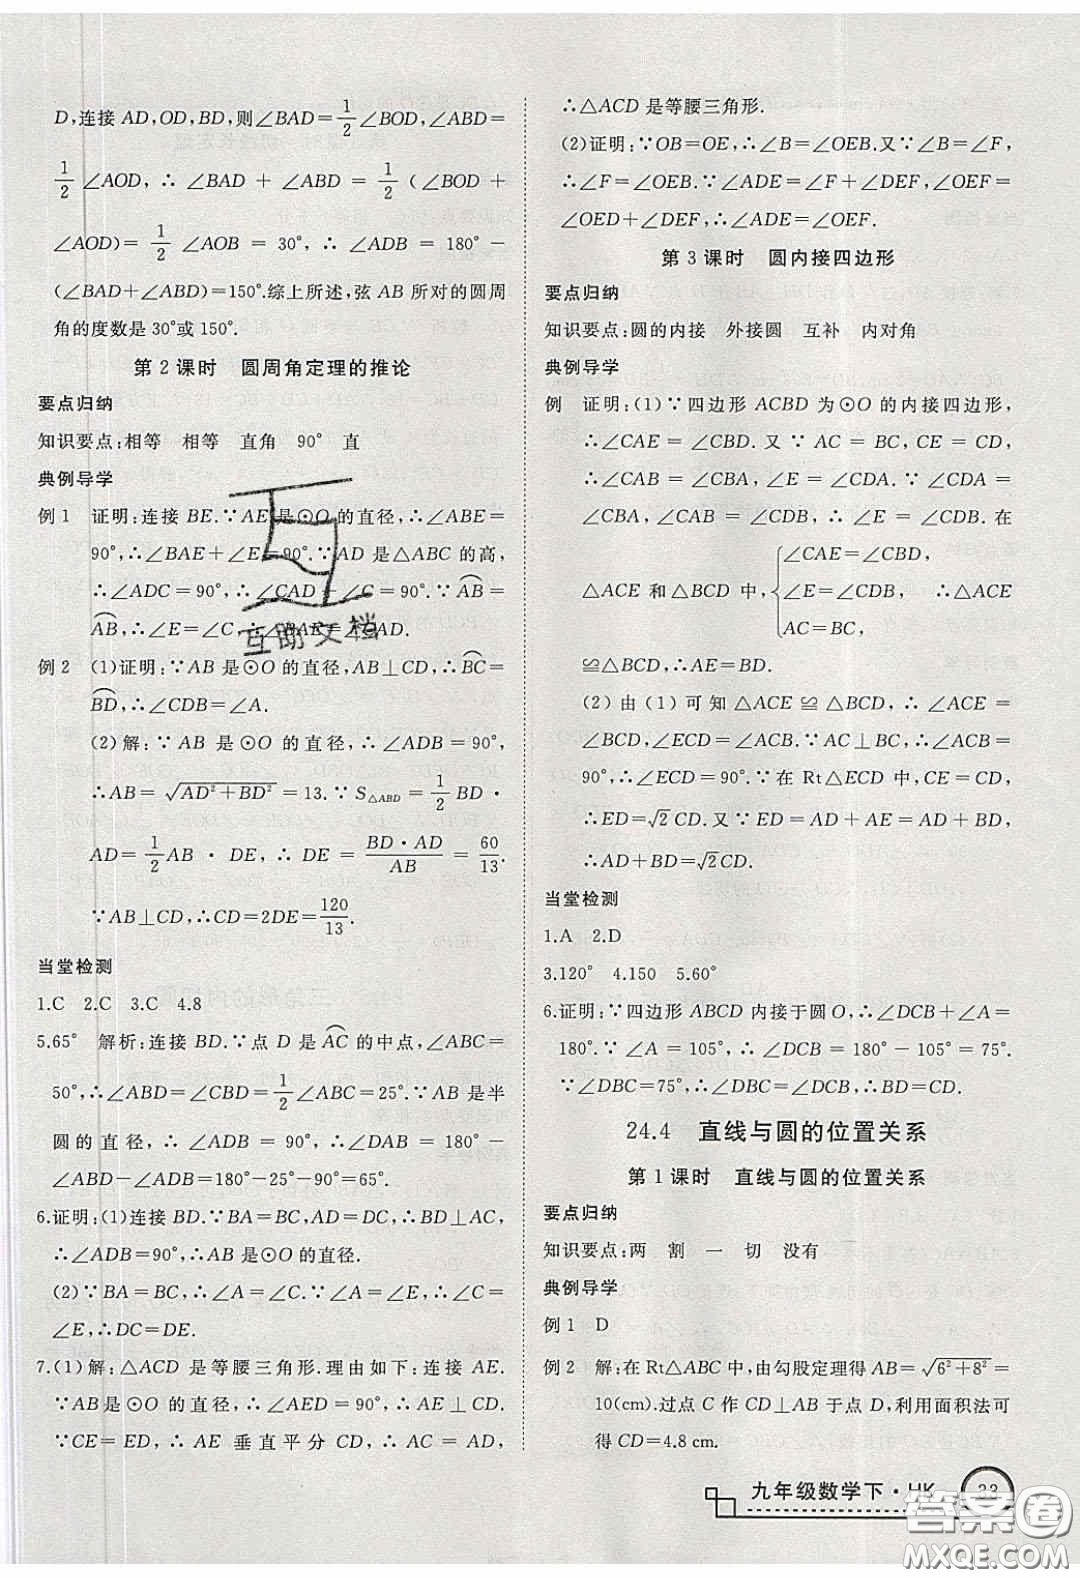 D,连接 AD,OD,BD,则∠BAD=1/2∠BOD,∠ABD=
1/2∠AOD,∴∠BAD+∠ABD=1/2(∠BOD+
∠AOD)=1/2∠AOB=30°,∴∠ADB=180°-
(∠BAD+∠ABD)=150°.综上所述,弦 AB 所对的圆周
角的度数是 30°或 150°.
第2课时 圆周角定理的推论
要点归纳
知识要点:相等 相等 直角 90° 直
典例导学
例1 证明:连接 BE.∵AE 是⊙O 的直径,∴∠ABE=
90°,∴∠BAE+∠E=90°.∵AD 是△ABC 的高,
∴∠ADC=90°,∴∠CAD+∠C=90°.∵⌒AB=
⌒AB,∴∠E=∠C,∴∠BAE=∠CAD.
例2 (1)证明:∵AB 是⊙O 的直径,AB⊥CD,∴⌒BC=
⌒BD,∴∠CDB=∠A.
(2)解:∵AB 是⊙O 的直径,∴∠ADB=90°,
∴AB=√(AD²+BD²)=13.∵S△ABD=1/2BD·
AD=1/2AB·DE,∴DE=BD·AD/AB=60/13.
∵AB⊥CD,∴CD=2DE=120/13.
当堂检测
1.C 2.C 3.C 4.8
5.65° 解析:连接 BD.∵点 D 是⌒AC的中点,∠ABC=
50°,∴∠ABD=∠CBD=1/2∠ABC=25°.∵AB 是半
圆的直径,∴∠ADB=90°,∴∠DAB=180°-
∠ABD-∠ADB=180°-25°-90°=65°.
6.证明:(1)连接 BD.∵BA=BC,AD=DC,∴BD⊥AC,
∴∠ADB=90°,∴AB 是⊙O 的直径.
(2)∵BA=BC,∴∠A=∠C.∵∠A=∠E,∴∠C=
∠E,∴DC=DE.
7.(1)解:△ACD 是等腰三角形.理由如下:连接 AE.
∵AB 是⊙O 的直径,∴∠AED=90°,∴AE⊥CD.
∵CE=ED,∴AE 垂直平分 CD,∴AC=AD,
∴△ACD 是等腰三角形.
(2)证明:∵OB=OE,∴∠B=∠OEB.又∵∠B=∠F,
∴∠F=∠OEB.∵∠ADE=∠F+∠DEF,∠OEF=
∠OED+∠DEF,∴∠ADE=∠OEF.
第3课时 圆内接四边形
要点归纳
知识要点:圆的内接 外接圆 互补 内对角
典例导学
例 证明:(1)∵四边形 ACBD 为⊙O 的内接四边形,
∴∠CAE=∠CBD.又∵AC=BC,CE=CD,
∴∠CAB=∠CBA,∠E=∠CDA.∵∠CDA=
∠CBA,∠CAB=∠CDB,∴∠E=∠CDB.在
∠CAE=∠CBD,
△ACE 和△BCD 中,{∠E=∠CDB, ∴△ACE
AC=BC,
≌△BCD,∴AE=BD.
(2)由(1)可知△ACE≌△BCD,∴∠ACE=
∠BCD,∠ECD=∠ACB.∵AC⊥BC,∴∠ACB=
90°,∴∠ECD=90°.∵在 Rt△ECD 中,CE=CD,
∴ED=√2CD.又∵ED=AD+AE=AD+BD,
∴AD+BD=√2CD.
当堂检测
1.A 2.D
3.120° 4.150 5.60°
6.证明:∵四边形 ABCD 内接于圆,∴∠DCB+∠A=
180°.∵∠A=105°,∴∠DCB=180°-105°=75°.
∵∠DBC=75°,∴∠DBC=∠DCB,∴BD=CD.
24.4 直线与圆的位置关系
第1课时 直线与圆的位置关系
要点归纳
知识要点:两 割 一 切 没有
典例导学
例1 D
例2 解:在 Rt△ABC 中,由勾股定理得 AB=√(6²+8²)=
10(cm).过点 C 作 CD⊥AB 于点 D,利用面积法可
得 CD=4.8 cm.
九年级数学下·HK 33
互助文档
答案圈
MXQE.COM